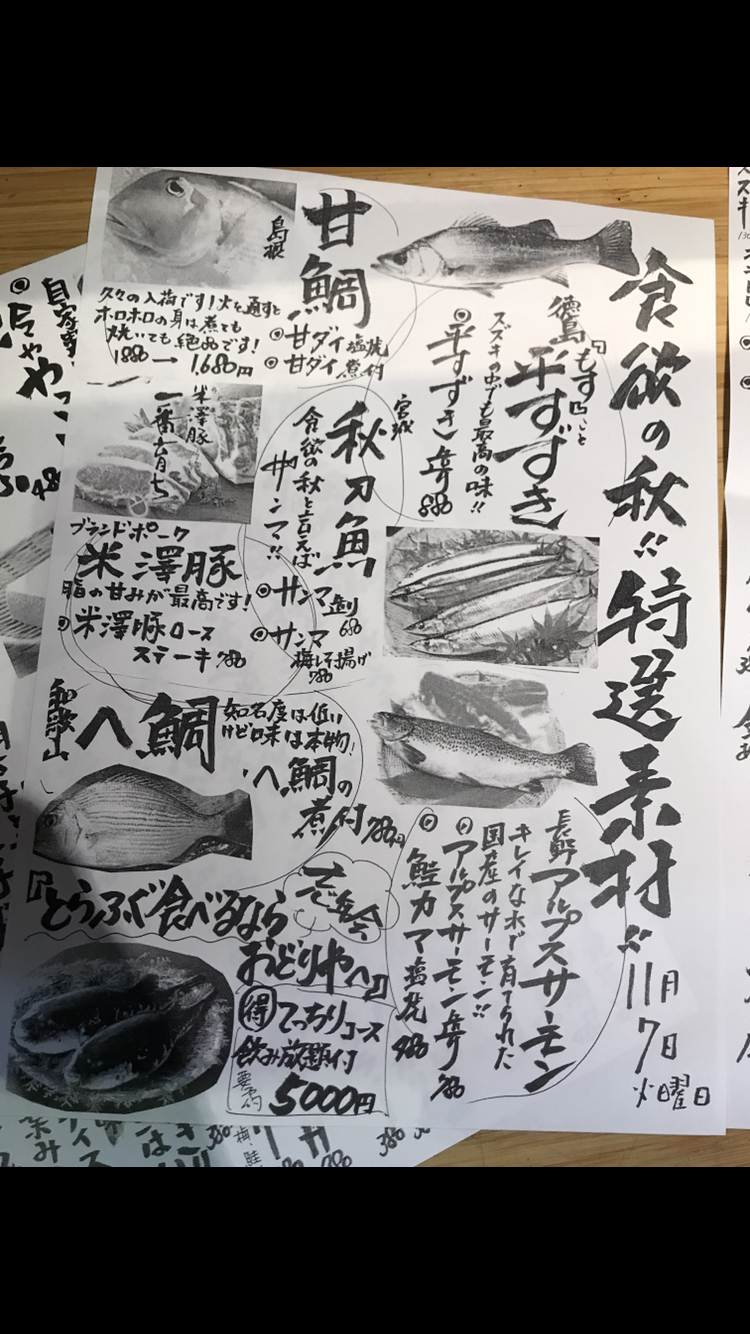 食欲の秋!! 特選素材!!
11月
7日
火曜日
徳島
『もす凸』こと
平すずき
スズキの中でも最高の味!!
◎平すずき造り
880
甘鯛
島根
久々の入荷です!火を通すと
ホロホロの身は煮ても
焼いても絶品です!
1880→1,680円
◎甘ダイ塩焼
◎甘ダイ煮付
宮城
秋刀魚
食欲の秋と言えば
サンマ!!
◎サンマ造り
680
◎サンマ
梅しそ揚げ
780
米澤豚
一番育ち
ブランドポーク
米澤豚
脂の甘みが最高です!
◎米澤豚ロース
ステーキ780
和歌山
へ鯛
知名度は低い
けど味は本物!
へ鯛の
煮付780円
長野
アルプスサーモン
キレイな水で育てられた
国産のサーモン!!
◎アルプスサーモン造り
780
◎鮭カマ塩焼
480
『とらふぐ食べるなら
おどりやへ』
忘年会
得てっちりコース
飲み放題付
要予約
5000円
自家製